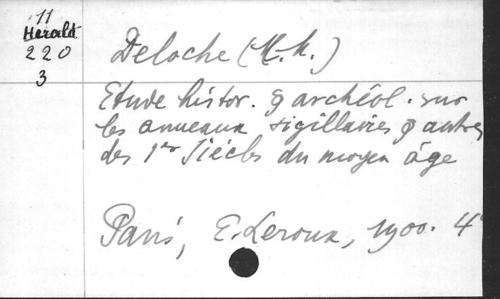 11
Herald
220
3
Deloche (M. M.)
Etude histor. & archéol. sur
les anneaux sigillaires & autres
des 1ers Siécles du moyen âge
Paris, E. Leroux, 1900. 4°